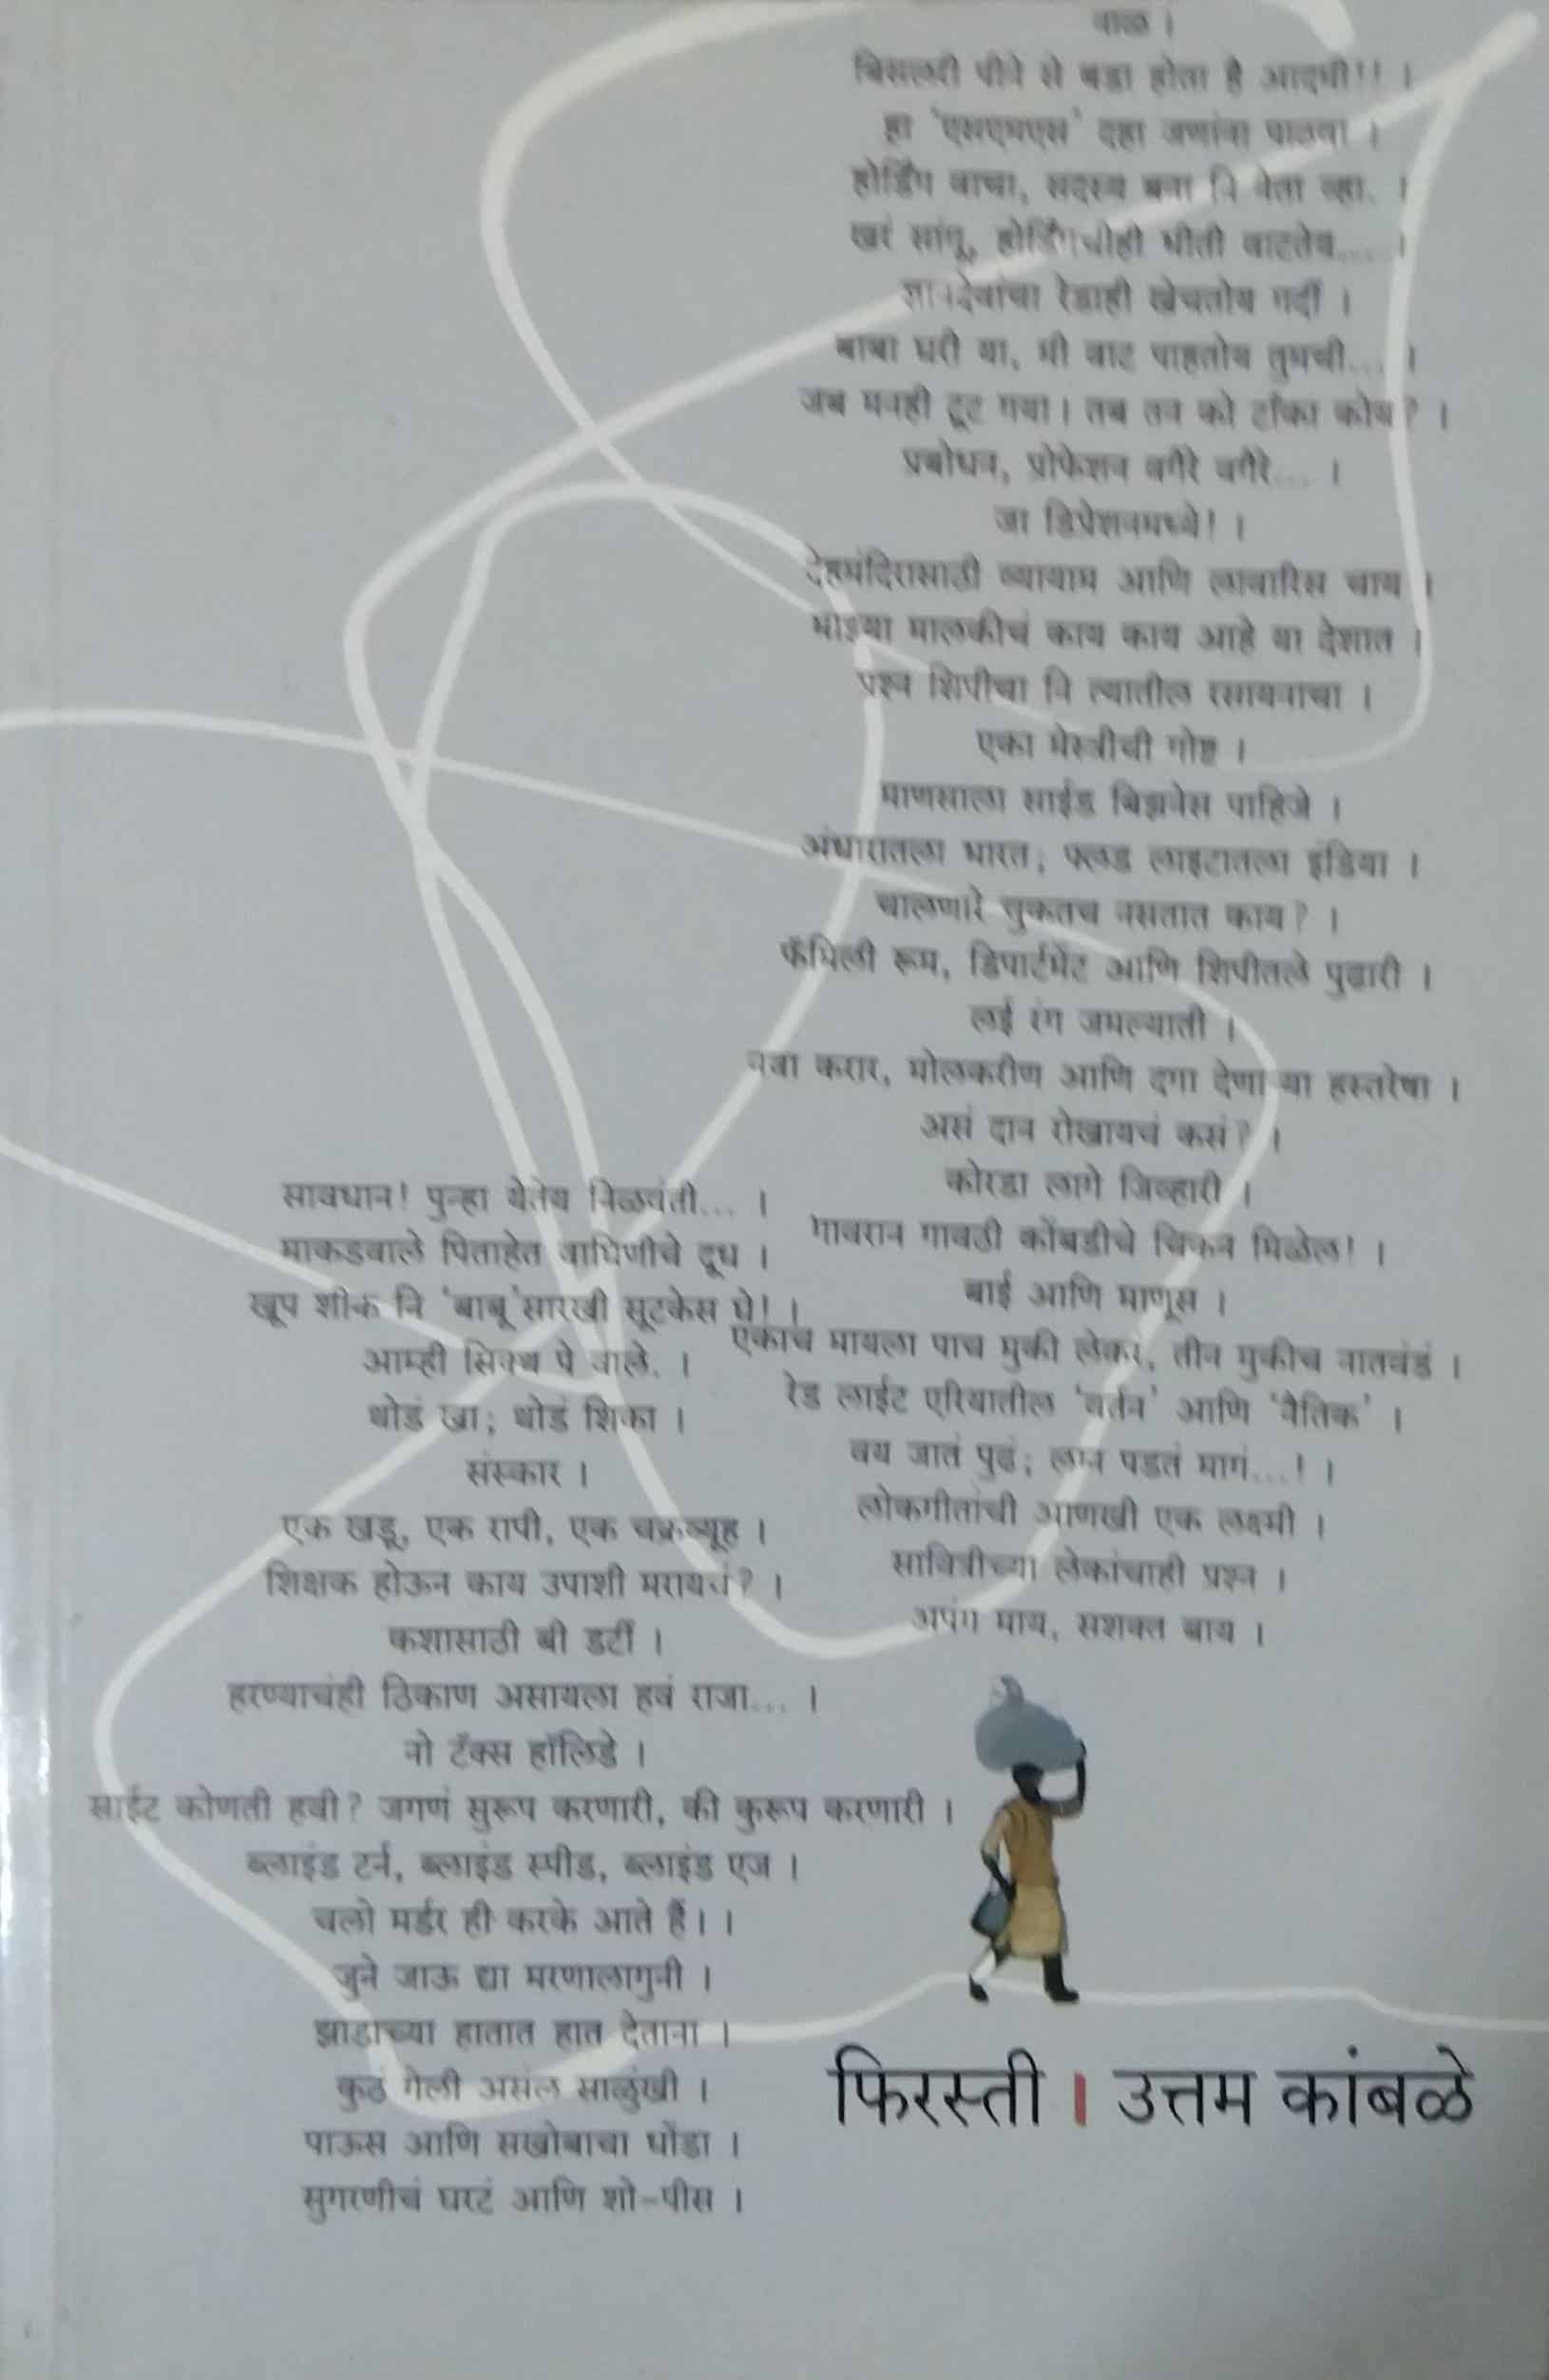 वाळ ।
बिसलरी पीने से बडा होता है आदमी!! ।
हा 'एसएमएस' दहा जणांना पाठवा ।
होर्डिंग वाचा, सदस्य बना नि नेता व्हा. ।
खरं सांगू, होर्डिंगचीही भीती वाटतेय.... ।
ज्ञानदेवांचा रेडाही खेचतोय गर्दी ।
बाबा घरी या, मी वाट पाहतोय तुमची... ।
जब मनही टूट गया। तब तन को टाँका कोय? ।
प्रबोधन, प्रोफेशन वगैरे वगैरे... ।
जा डिप्रेशनमध्ये! ।
देहमंदिरासाठी व्यायाम आणि लावारिस चाय ।
माझ्या मालकीचं काय काय आहे या देशात ।
प्रश्न शिपीचा नि त्यातील रसायनाचा ।
एका मेस्त्रीची गोष्ट ।
माणसाला साईड बिझनेस पाहिजे ।
अंधारातला भारत; फ्लड लाइटातला इंडिया ।
चालणारे चुकतच नसतात काय? ।
फॅमिली रूम, डिपार्टमेंट आणि शिपीतले पुढारी ।
लई रंग जमल्याती ।
नवा करार, मोलकरीण आणि दगा देणाऱ्या हस्तरेषा ।
असं दान रोखायचं कसं? ।
कोरडा लागे जिव्हारी ।
गावरान गावठी कोंबडीचे चिकन मिळेल! ।
बाई आणि माणूस ।
एकाच मायला पाच मुकी लेकरं, तीन मुकीच नातवंडं ।
रेड लाईट एरियातील 'वर्तन' आणि 'नैतिक' ।
वय जातं पुढं; लग्न पडतं मागं...! ।
लोकगीतांची आणखी एक लक्ष्मी ।
सावित्रीच्या लेकांचाही प्रश्न ।
अपंग माय, सशक्त बाय ।
सावधान! पुन्हा येतेय निळवंती... ।
माकडवाले पिताहेत वाघिणीचे दूध ।
खूप शीक नि 'बाबू'सारखी सूटकेस घे! ।
आम्ही सिक्थ पे वाले. ।
थोडं खा; थोडं शिका ।
संस्कार ।
एक खडू, एक रापी, एक चक्रव्यूह ।
शिक्षक होऊन काय उपाशी मरायचं? ।
कशासाठी बी डर्टी ।
हरण्याचंही ठिकाण असायला हवं राजा... ।
नो टॅक्स हॉलिडे ।
साईट कोणती हवी? जगणं सुरूप करणारी, की कुरूप करणारी ।
ब्लाइंड टर्न, ब्लाइंड स्पीड, ब्लाइंड एज ।
चलो मर्डर ही करके आते हैं। ।
जुने जाऊ द्या मरणालागुनी ।
झाडाच्या हातात हात देताना ।
कुठं गेली असंल साळुंखी ।
पाऊस आणि सखोबाचा धोंडा ।
सुगरणीचं घरटं आणि शो-पीस ।
फिरस्ती । उत्तम कांबळे